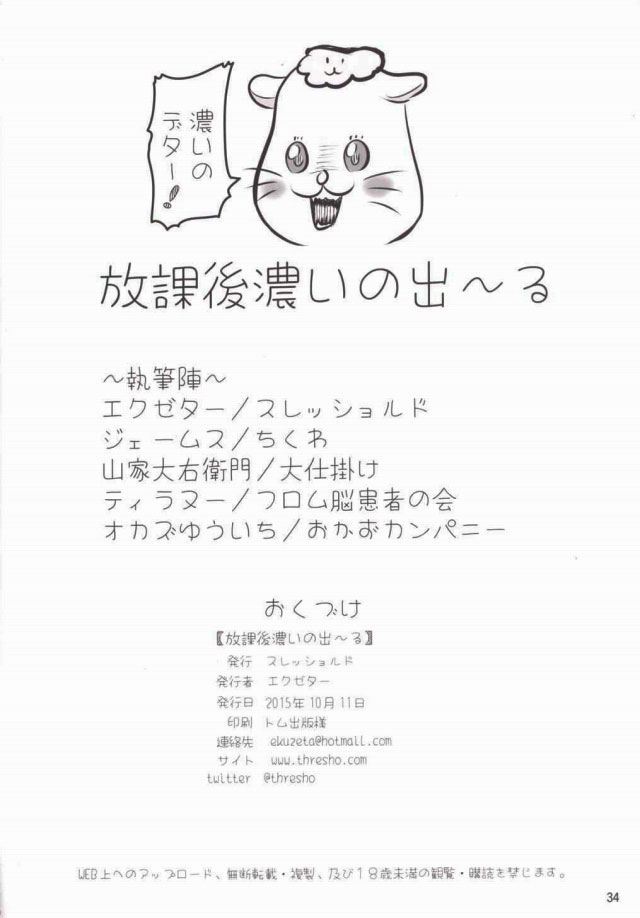 濃いの
デター!
放課後濃いの出〜る
〜執筆陣〜
エクゼター/スレッショルド
ジェームス/ちくわ
山家大右衛門/大仕掛け
ティラヌー/フロム脳患者の会
オカズゆういち/おかおカンパニー
おくづけ
【放課後濃いの出〜る】
発行 スレッショルド
発行者 エクゼター
発行日 2015年10月11日
印刷 トム出版様
連絡先 ekuzeta@hotmail.com
サイト www.thresho.com
twitter @thresho
WEB上へのアップロード、無断転載・複製、及び18歳未満の観覧・購読を禁じます。
34